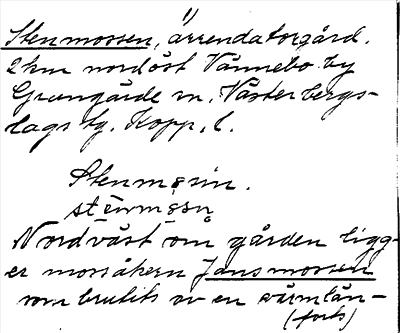 Stenmossen, arrendatorgård.
2 km nordöst Vännebo by
Grangärde sn, Västerbergs-
lags tg. Kopp. l.
Stenmosin.
Nordväst om gården ligg-
er mossåkern Jansmossen
som brutits av en värmlän-
(forts)